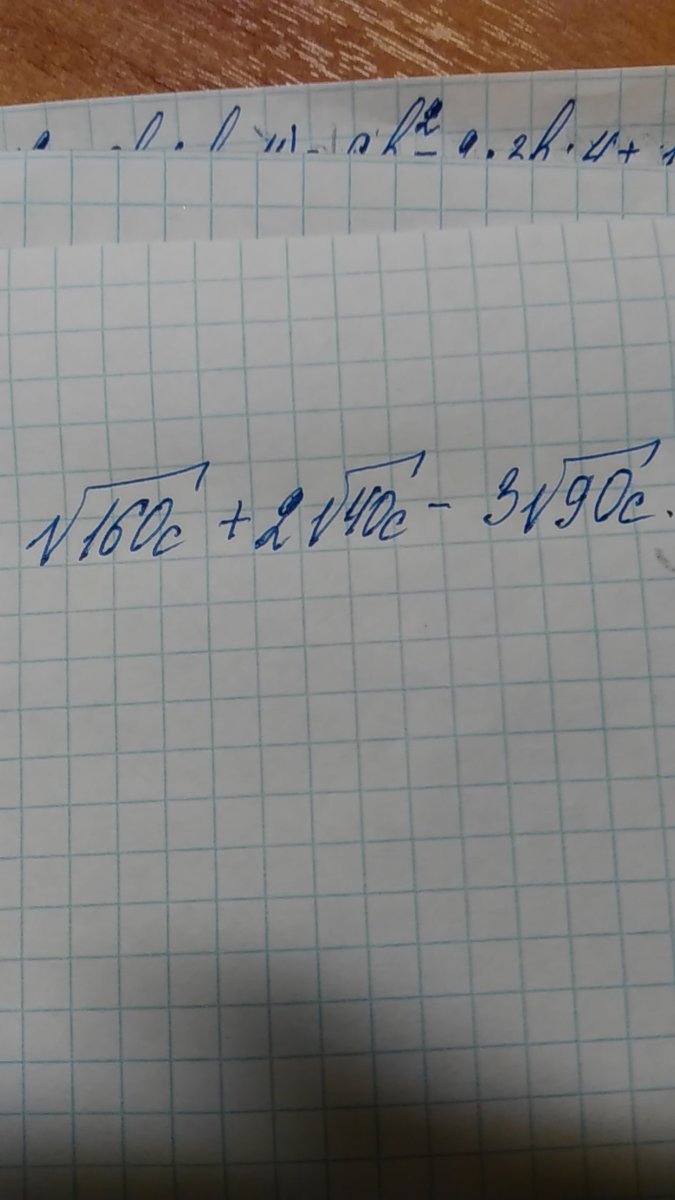 h² - 9 · 2h · 4 +
√160c + 2√40c - 3√90c.